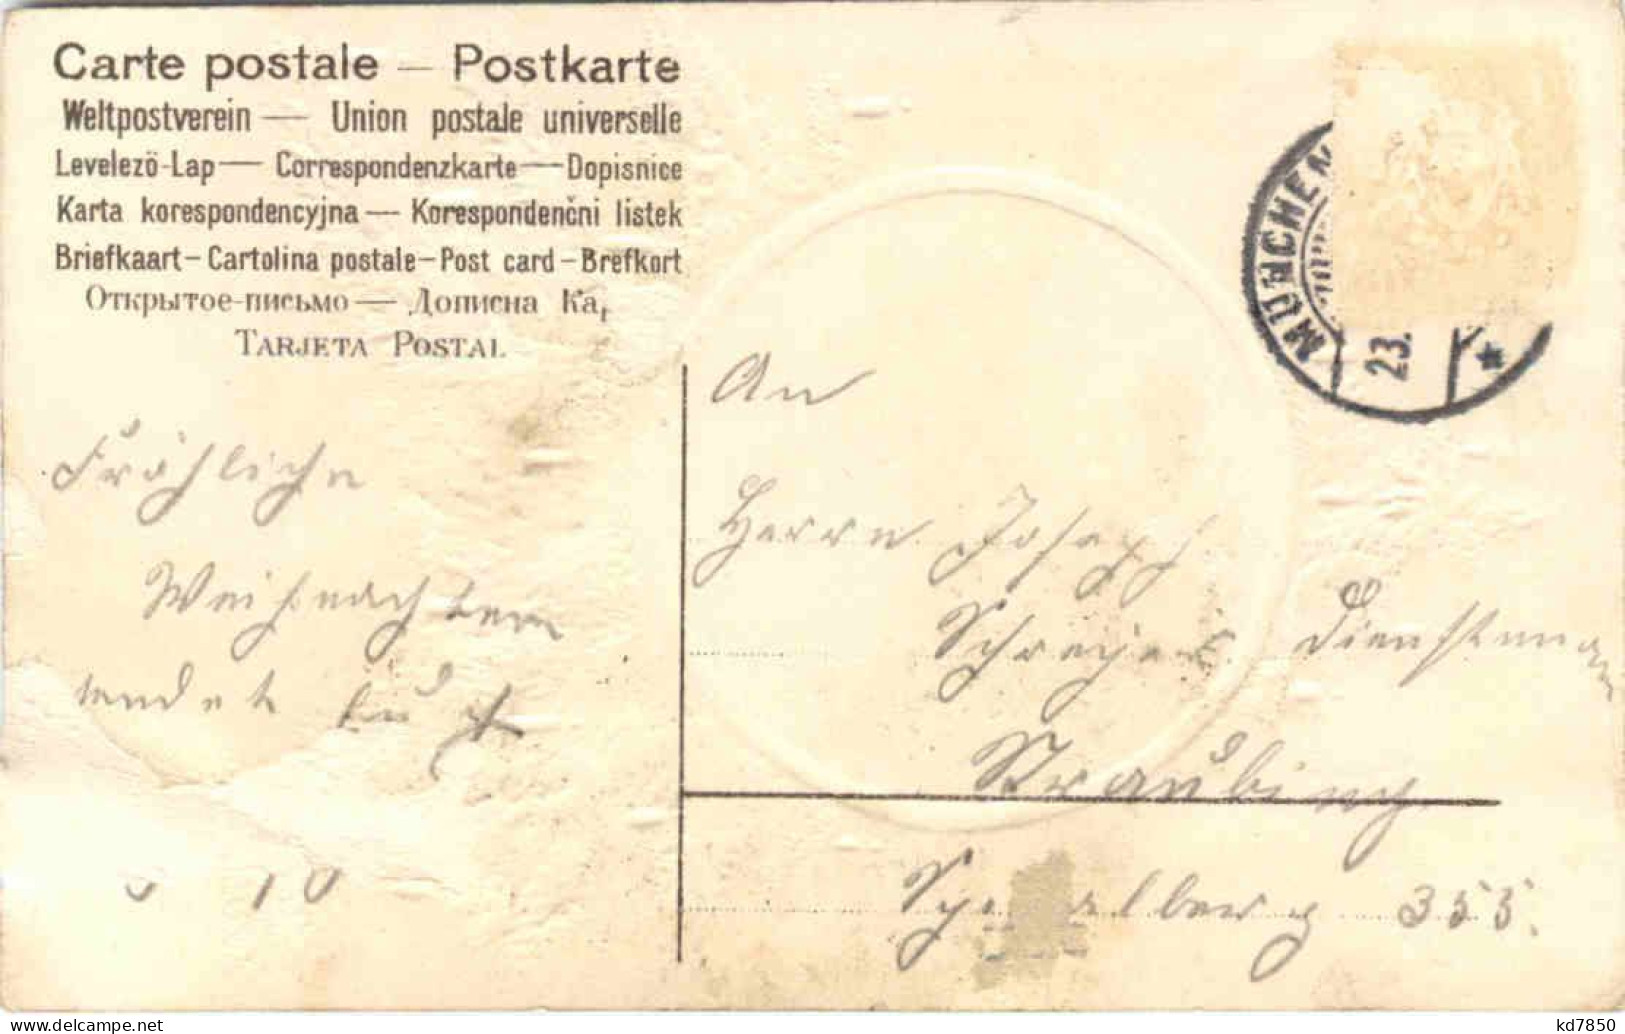 Carte postale — Postkarte
Weltpostverein — Union postale universelle
Levelező-Lap — Correspondenzkarte — Dopisnice
Karta korespondencyjna — Korespondenčni listek
Briefkaart – Cartolina postale – Post card – Brefkort
Открытое-письмо — Дописна Ка
TARJETA POSTAL
MÜNCHEN
23.
An
Fröhliche
Herrn Joseph
Weihnachten
Schreyer Dienstmann
sendet
Straubing
355.
kd7850